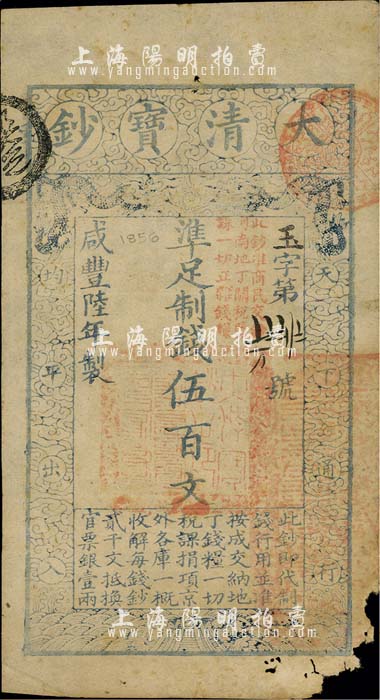 上海陽明拍賣
www.yangmingauction.com
大清寶鈔
玉字第
號
準足制錢伍百文
1856
咸豐陸年製
天下通行
均平出入
此鈔即代制
錢行用並準
按成交納地
丁錢糧一切
稅課捐項京
外各庫一概
收解每錢鈔
貳千文抵換
官票銀壹兩
上海陽明拍賣
www.yangmingauction.com
上海陽明拍賣
www.yangmingauction.com